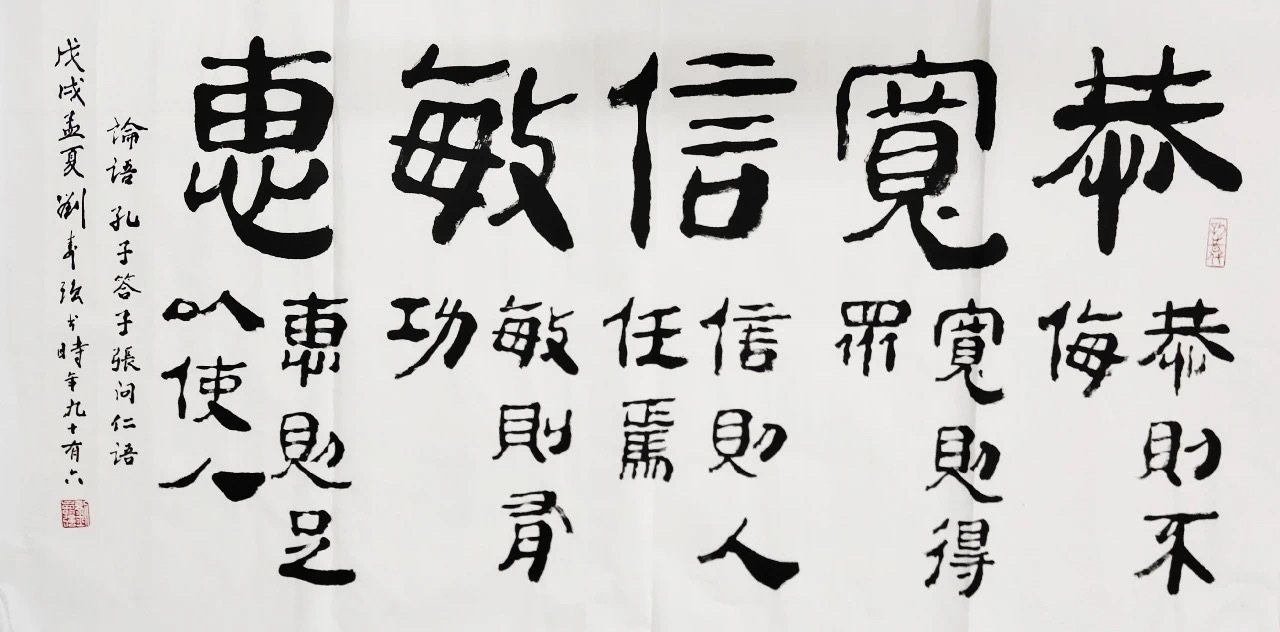 恭
恭則不
侮
寬
寬則得
眾
信
信則人
任焉
敏
敏則有
功
惠
惠則足
以使人
論語孔子答子張問仁語
戊戌孟夏劉書時年九十有六